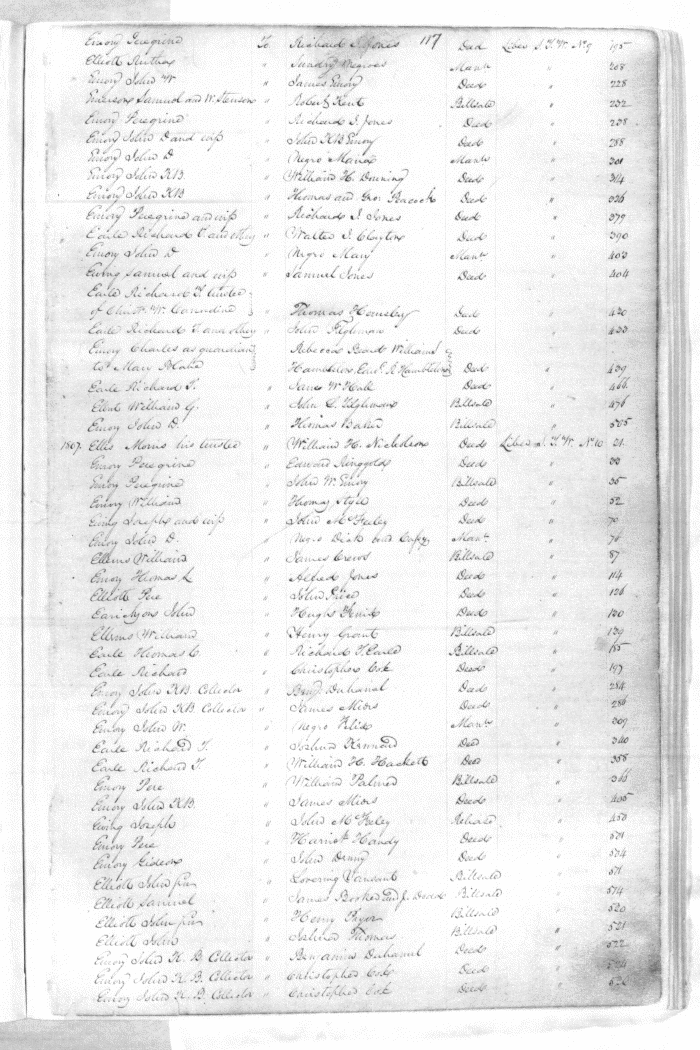 117
Emory Peregrine To Richard I. Jones Deed Liber S.T.W. No 9 195
Elliott Ruthea " Sundry Negroes Manu " 208
Emory John W " James Emory Deed " 228
Emerson Samuel and W. " Robert Kent Billsale " 232
Emory Peregrine " Richard I Jones Deed " 238
Emory John D and wife " John K B Emory Deed " 288
Emory John D " Negro Maria Manu " 301
Emory John K.B. " William H. Downing Deed " 314
Emory John K.B " Thomas and Geo. Peacock Deed " 326
Emory Peregrine and wife " Richard I. Jones Deed " 379
Earle Richard T. and others " Walter J. Clayton Deed " 390
Emory John D " Negro Mary Manu " 403
Ewing Samuel and wife " Samuel Jones Deed " 404
Earle Richard T. trustee
of Christr W. " Thomas Hemsley Deed " 430
Earle Richard T. and others " John Tilghman Deed " 433
Emory Charles as guardian Rebecca
to Mary Blake " Hambleton Edwd. R Hambleton Deed " 439
Earle Richard T. " James W Hall Deed " 466
Elbert William G. " John C. Tilghman Billsale " 476
Emory John D. " Thomas Baker Billsale " 505
1807. Ellis Morris his trustee " William H. Nicholson Deed Liber S.T.W. No 10 21
Emory Peregrine " Edward Ringgold Deed " 33
Emory Peregrine " John W. Emory Billsale " 35
Emory William " Thomas Deed " 52
Ewing Joseph and wife " John McFeeley Deed " 70
Emory John D. " Negro Dick Manu " 76
Ellems William " James Crews Billsale " 87
Emory Thomas L " Alfred Jones Deed " 114
Elliott Pere " John Price Deed " 126
Earickson John " Hugh Deed " 130
Ellems William " Henry Grant Billsale " 139
Earle Thomas C. " Richard T. Earle Billsale "
Earle Richard " Christopher Cox Deed " 197
Emory John K.B. Collector " Benj. Duhamel Deed " 284
Emory John K.B. Collector " James Miers Deed " 286
Emory John W. " Negro Felix Manu " 309
Earle Richard T. " Joshua Kennard Deed " 340
Earle Richard T. " William H. Hackett Deed " 358
Emory Pere " William Palmer Billsale " 366
Emory John K.B. " James Miers Deed " 405
Ewing Joseph " John McFeeley Release " 450
Emory Pere " Harriet Handy Deed " 571
Emory Gideon " John Denny Deed " 574
Elliott John jur " Lovering Vansant Billsale " 571
Elliott Samuel " James and J. Billsale " 574
Elliott John jur " Henry Pryor Billsale " 520
Elliott John " Joshua Thomas Billsale " 521
Emory John K. B. Collector " Benjamin Duhamel Deed " 522
Emory John K. B. Collector " Christopher Cox Deed "
Emory John K. B. Collector " Christopher Cox Deed "